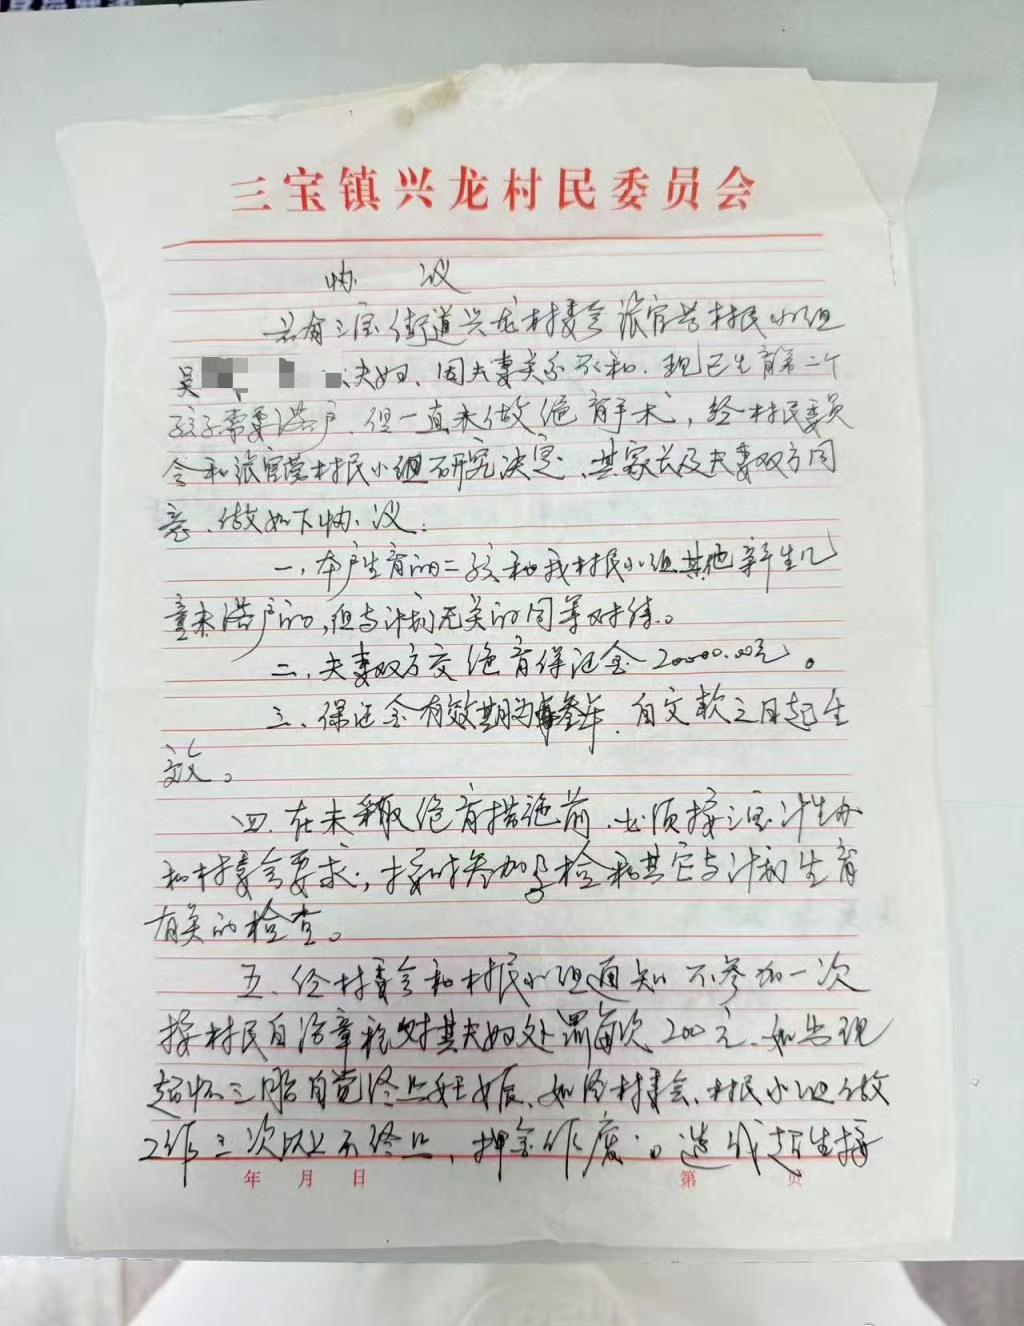 三宝镇兴龙村民委员会
协 议
兹有三宝街道兴龙村委会张官营村民小组
吴 夫妇、因夫妻关系不和.现已生育第二个
孩子需要落户.但一直未做绝育手术,经村民委员
会和张官营村民小组研究决定、其家长及夫妻双方同
意、做如下协议:
一、本户生育的二孩和我村民小组其他新生儿
童未落户的,但与计划无关的同等对待。
二、夫妻双方交绝育保证金20000.00元。
三、保证金有效期为叁年.自交款之日起生
效。
四、在未采取绝育措施前、必须按三宝计生办
和村委会要求,按时参加孕检和其它与计划生育
有关的检查。
五、经村委会和村民小组通知不参加一次
按村民自治章程对其夫妇处罚每次200元.如出现
超怀三胎自觉终止妊娠、如经村委会、村民小组做
工作三次以上不终止,押金作废。造成超生按
年 月 日 第 页